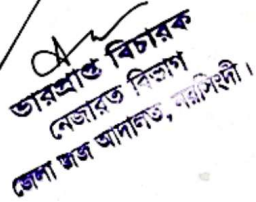 ভারপ্রাপ্ত বিচারক
নেজারত বিভাগ
জেলা জজ আদালত, নরসিংদী।